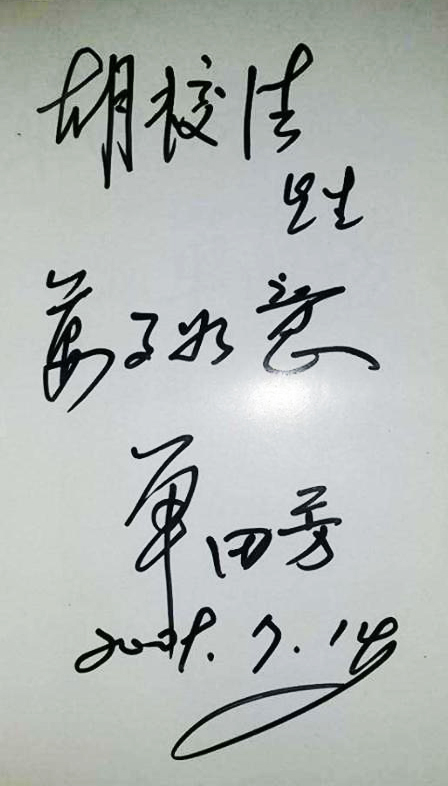 胡校法
先生
萬事如意
单田芳
7.14